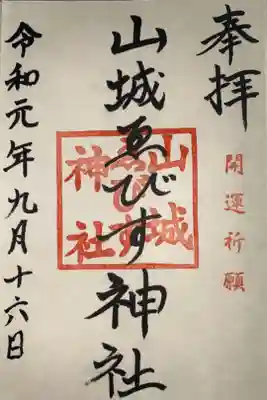 奉拝
開運祈願
山城ゑびす神社
山城
ゑびす
神社
令和元年九月十六日